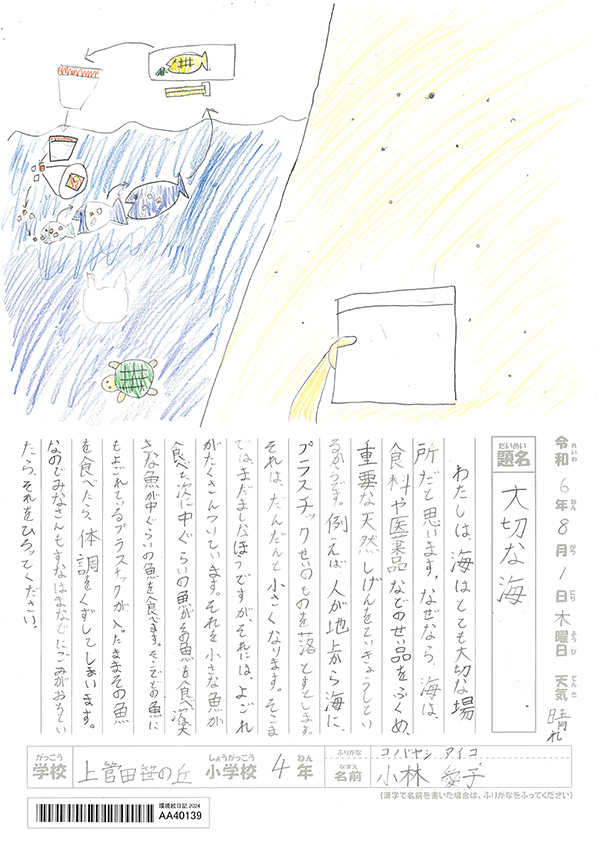 令和6年8月1日木曜日 天気 晴れ
れいわ ねん がつ にち ようび てんき
だいめい
題名 大切な海
わたしは、海はとても大切な場
所だと思います。なぜなら、海は、
食料や医薬品などのせい品をふくめ、
重要な天然しげんをていきょうしてい
るからです。例えば、人が地上から海に、
プラスチックせいのものを落とすとします。
それは、だんだんと小さくなります。そこま
ではまだましなほうですが、それには、よごれ
がたくさんついています。それを小さな魚が
食べ、次に中ぐらいの魚がその魚を食べ、大
きな魚が中ぐらいの魚を食べます。そこでその魚に
もよごれているプラスチックが入ったままその魚
を食べたら、体調をくずしてしまいます。
なのでみなさんもすなはまなどにごみがおちてい
たら、それをひろってください。
がっこう しょうがっこう ねん ふりがな コバヤシ アイコ
学校 上菅田笹の丘 小学校 4年 なまえ 名前 小林 愛子
(漢字で名前を書いた場合は、ふりがなをふってください)
環境絵日記 2024
AA40139